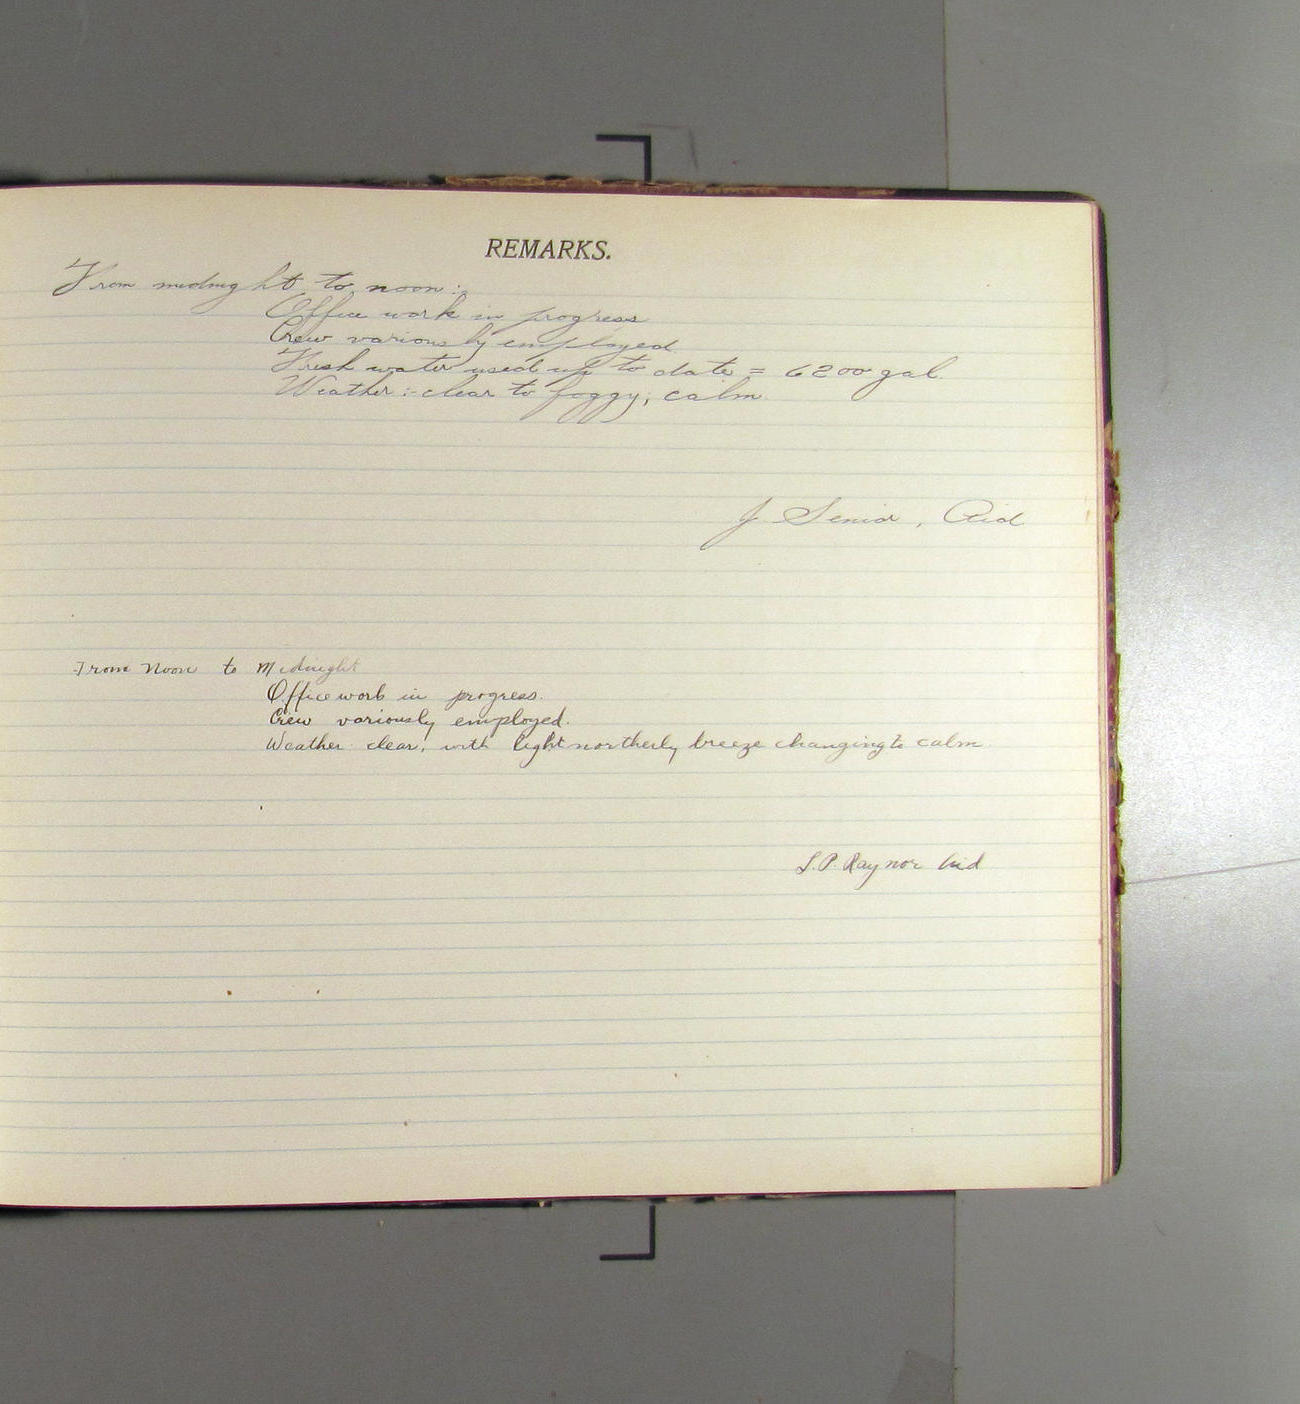 REMARKS.
From midnight to noon:-
Office work in progress
Crew variously employed
Fresh water used up to date = 6200 gal.
Weather:- clear to foggy; calm.
J Senior, Aid
From Noon to Midnight
Office work in progress.
Crew variously employed.
Weather clear, with light northerly breeze changing to calm
L.P. Raynor Aid